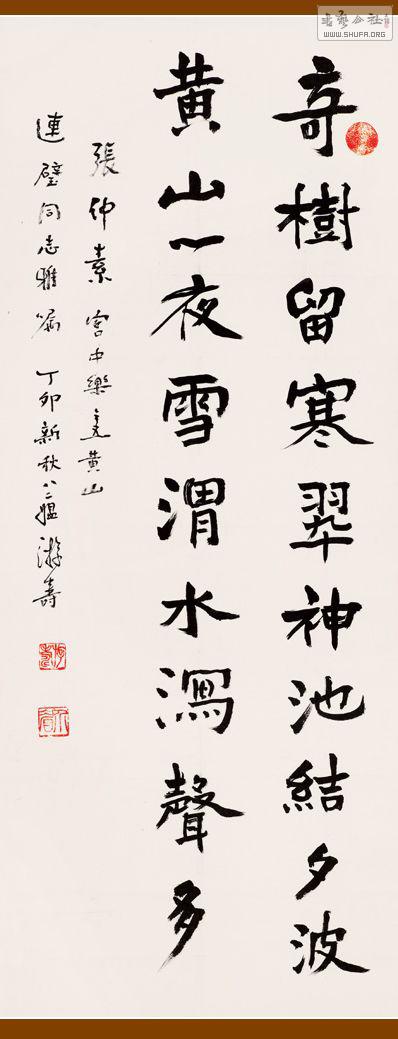 書藝公社
WWW.SHUFA.ORG
奇樹留寒翠神池結夕波
黃山一夜雪渭水聲多
張仲素 宮中樂黃山
連璧同志雅屬 丁卯新秋八二媼游壽